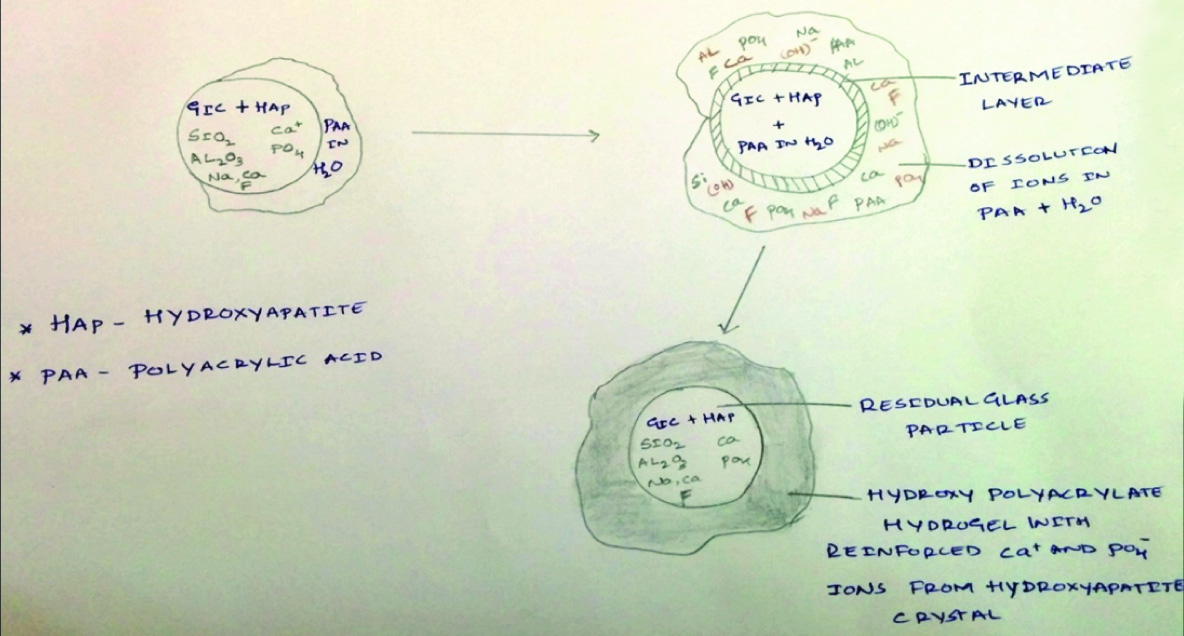 GIC + HAP
SIO₂ Ca⁺
AL₂O₃ PO₄
Na, Ca
F
PAA
IN
H₂O
AL PO4 Na PAA
F Ca (OH)⁻ AL
Ca
F
(OH)⁻
Na
GIC + HAP
+
PAA IN H₂O
Si (OH) Ca PO4
Ca F PO4 Na F PAA
INTERMEDIATE
LAYER
DISSOLUTION
OF IONS IN
PAA + H₂O
* HAP - HYDROXYAPATITE
* PAA - POLYACRYLIC ACID
GIC + HAP
SIO₂ Ca
AL₂O₃ PO4
Na, Ca
F
RESIDUAL GLASS
PARTICLE
HYDROXY POLYACRYLATE
HYDROGEL WITH
REINFORCED Ca⁺ AND PO₄⁻
IONS FROM HYDROXYAPATITE
CRYSTAL